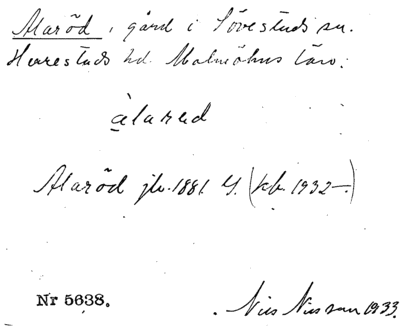 Alaröd, gård i Sövestads sn.
Herrestads hd. Malmöhus län.
àlarød
Alaröd jb. 1881. G. (kb. 1932—)
Nr 5638.
Nils Nilsson 1933.